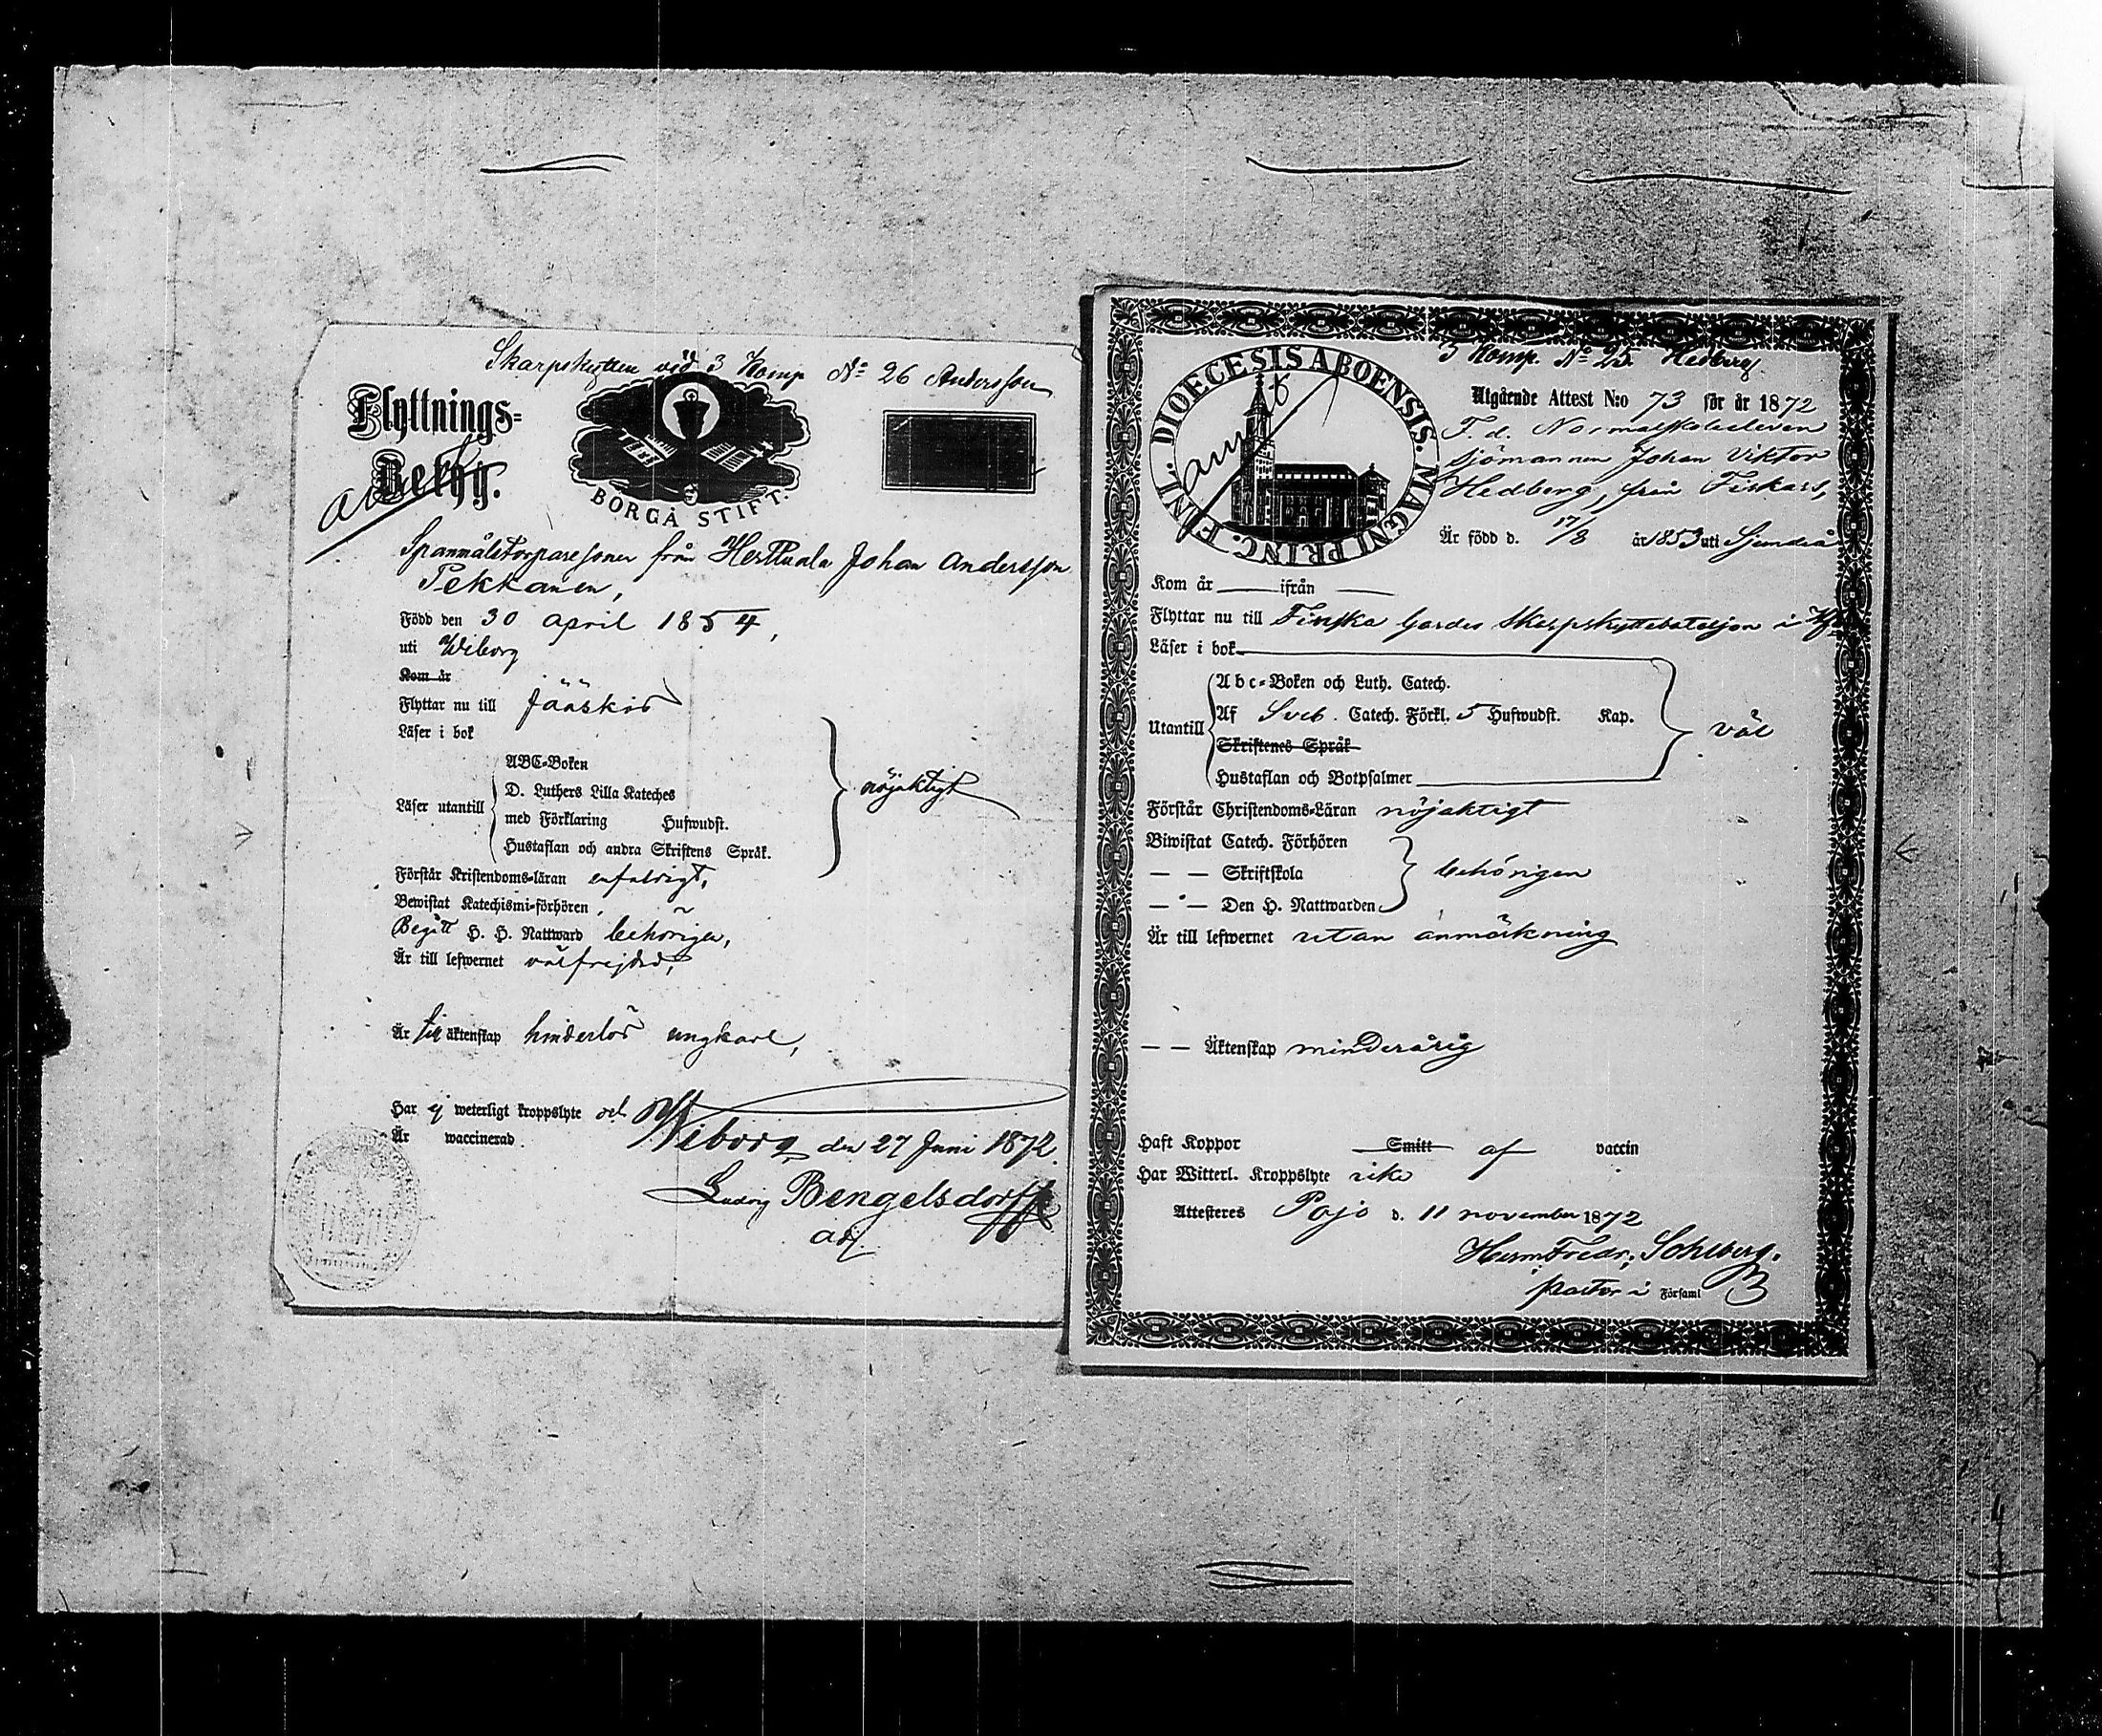 Skarpskytten vid 3 Komp No 26 Andersson
Flyttnings=
Betyg.
BORGÅ STIFT.
Spanmålstorparesonen från Herttuala Johan Andersson
Pekkanen,
Född den 30 April 1854,
uti Wiborg
Kom år
Flyttar nu till Jääskis
Läser i bok
Läser utantill
ABC-Boken
D. Luthers Lilla Kateches
med Förklaring Hufwudst.
Hustaflan och andra Skriftens Språk.
nöjaktigt
Förstår Kristendoms-läran enfaldigt,
Bewistat Katechismi-förhören,
Begått H. H. Nattward behörigen,
Är till lefwernet välfrejdad,
Är till äktenskap hinderlös ungkarl,
Har ej weterligt kroppslyte och
Är waccinerad.
Wiborg den 27 Juni 1872.
Ludvig Bengelsdorff
adj
3 Komp. No 25. Hedberg
DIOECESIS ABOENSIS. MAGNI PRINC. FINL.
Utgående Attest N:o 73 för år 1872
F. d. Normalskoleeleven
sjömannen Johan Viktor
Hedberg, från Fiskars,
Är född d. 17/8 år 1853 uti Sjundeå
Kom år ifrån
Flyttar nu till Finska Gardes Skarpskyttebataljon i Hfors
Läser i bok
Utantill
Abc-Boken och Luth. Catech.
Af Sveb. Catech. Förkl. 5 Hufwudst. Kap.
Skriftenes Språk
Hustaflan och Botpsalmer
väl
Förstår Christendoms-Läran nöjaktigt
Biwistat Catech. Förhören
— — Skriftskola
— — Den H. Nattwarden
behörigen
Är till lefwernet utan anmärkning
— — Äktenskap minderårig
Haft Koppor Smitt af vaccin
Har Witterl. Kroppslyte icke
Attesteres Pojo d. 11 november 1872
Herm Fredr. Sohlberg.
pastor i Församl